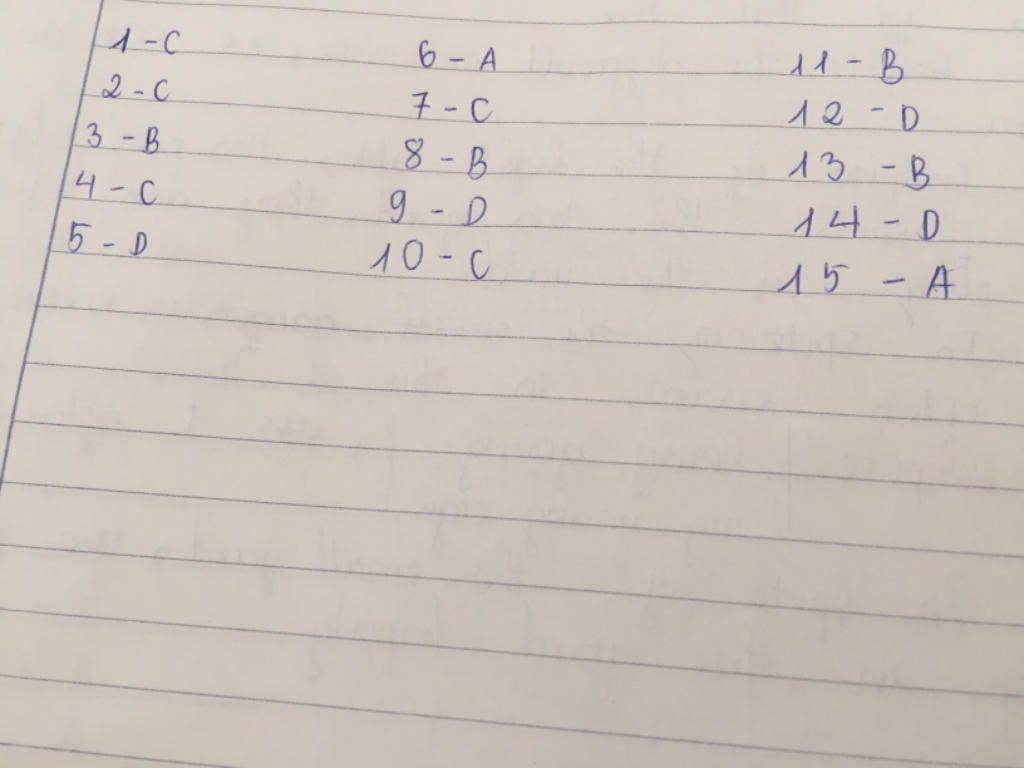 1 - C
2 - C
3 - B
4 - C
5 - D
6 - A
7 - C
8 - B
9 - D
10 - C
11 - B
12 - D
13 - B
14 - D
15 - A